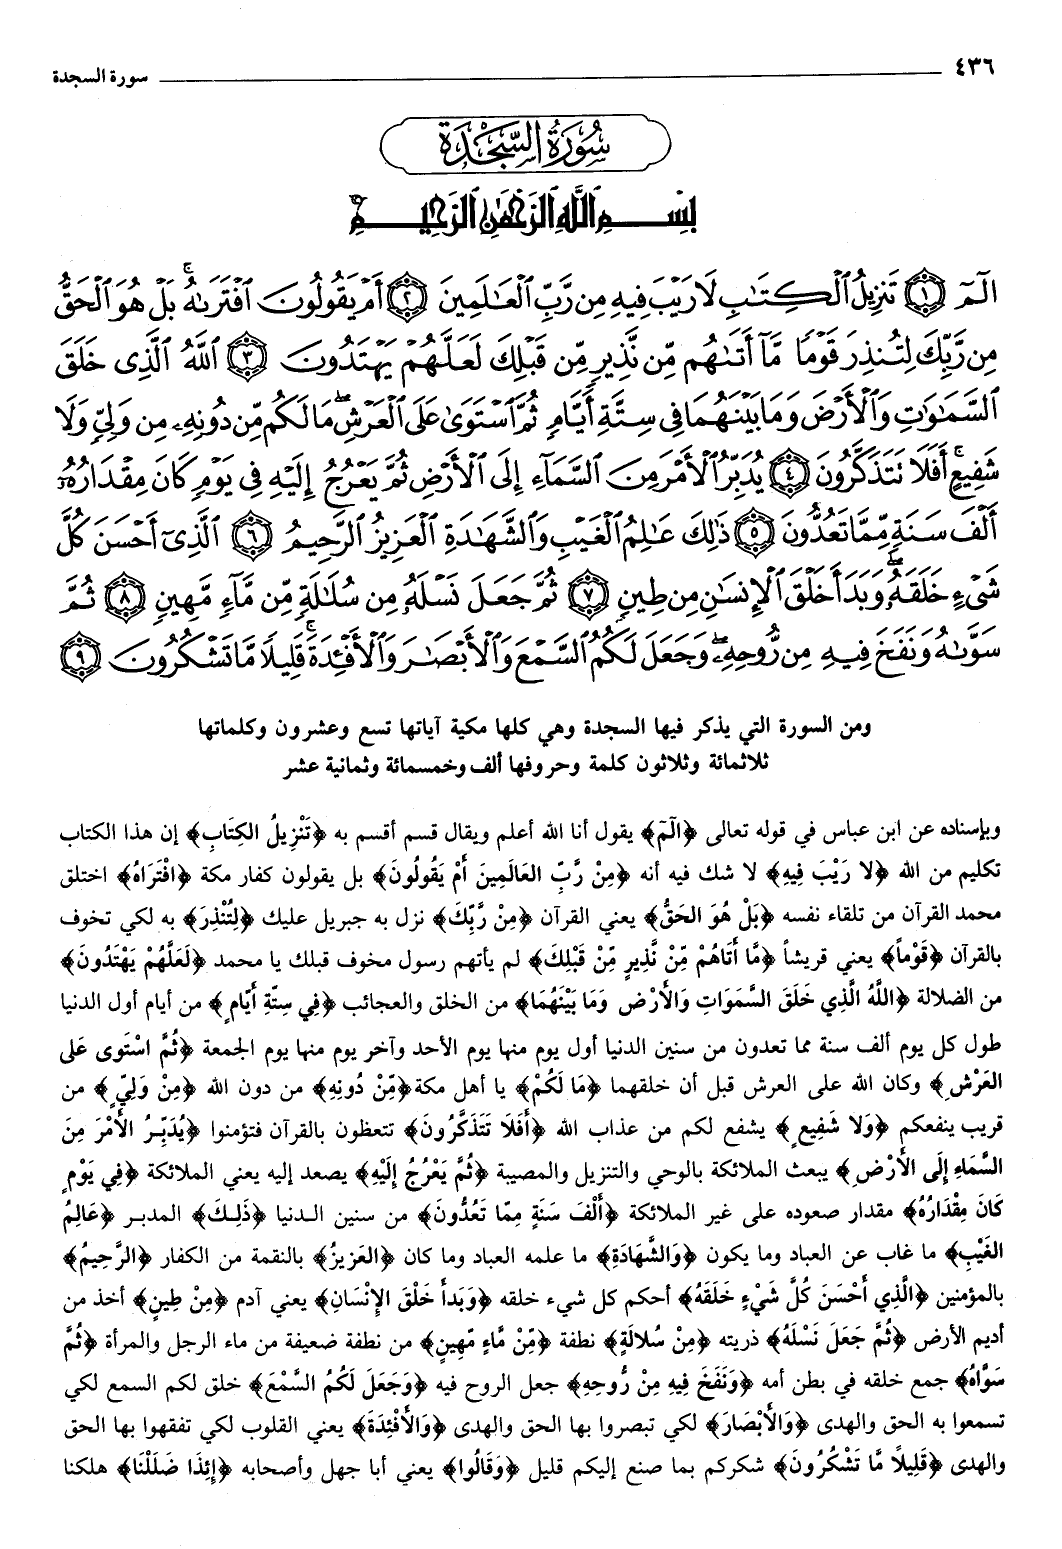 ٤٣٦ سورة السجدة
سُورَةُ السَّجْدَةِ
بِسْمِ ٱللَّهِ ٱلرَّحْمَٰنِ ٱلرَّحِيمِ
الٓمٓ ۝١ تَنزِيلُ ٱلْكِتَٰبِ لَا رَيْبَ فِيهِ مِن رَّبِّ ٱلْعَٰلَمِينَ ۝٢ أَمْ يَقُولُونَ ٱفْتَرَىٰهُ ۚ بَلْ هُوَ ٱلْحَقُّ
مِن رَّبِّكَ لِتُنذِرَ قَوْمًا مَّآ أَتَىٰهُم مِّن نَّذِيرٍ مِّن قَبْلِكَ لَعَلَّهُمْ يَهْتَدُونَ ۝٣ ٱللَّهُ ٱلَّذِى خَلَقَ
ٱلسَّمَٰوَٰتِ وَٱلْأَرْضَ وَمَا بَيْنَهُمَا فِى سِتَّةِ أَيَّامٍ ثُمَّ ٱسْتَوَىٰ عَلَى ٱلْعَرْشِ ۖ مَا لَكُم مِّن دُونِهِۦ مِن وَلِىٍّ وَلَا
شَفِيعٍ ۚ أَفَلَا تَتَذَكَّرُونَ ۝٤ يُدَبِّرُ ٱلْأَمْرَ مِنَ ٱلسَّمَآءِ إِلَى ٱلْأَرْضِ ثُمَّ يَعْرُجُ إِلَيْهِ فِى يَوْمٍ كَانَ مِقْدَارُهُۥٓ
أَلْفَ سَنَةٍ مِّمَّا تَعُدُّونَ ۝٥ ذَٰلِكَ عَٰلِمُ ٱلْغَيْبِ وَٱلشَّهَٰدَةِ ٱلْعَزِيزُ ٱلرَّحِيمُ ۝٦ ٱلَّذِىٓ أَحْسَنَ كُلَّ
شَىْءٍ خَلَقَهُۥ ۖ وَبَدَأَ خَلْقَ ٱلْإِنسَٰنِ مِن طِينٍ ۝٧ ثُمَّ جَعَلَ نَسْلَهُۥ مِن سُلَٰلَةٍ مِّن مَّآءٍ مَّهِينٍ ۝٨ ثُمَّ
سَوَّىٰهُ وَنَفَخَ فِيهِ مِن رُّوحِهِۦ ۖ وَجَعَلَ لَكُمُ ٱلسَّمْعَ وَٱلْأَبْصَٰرَ وَٱلْأَفْـِٔدَةَ ۚ قَلِيلًا مَّا تَشْكُرُونَ ۝٩
ومن السورة التي يذكر فيها السجدة وهي كلها مكية آياتها تسع وعشرون وكلماتها
ثلاثمائة وثلاثون كلمة وحروفها ألف وخمسمائة وثمانية عشر
وبإسناده عن ابن عباس في قوله تعالى ﴿الٓمٓ﴾ يقول أنا الله أعلم ويقال قسم أقسم به ﴿تَنْزِيلُ الكِتَابِ﴾ إن هذا الكتاب
تكليم من الله ﴿لا رَيْبَ فِيهِ﴾ لا شك فيه أنه ﴿مِنْ رَّبِّ العَالَمِينَ أَمْ يَقُولُونَ﴾ بل يقولون كفار مكة ﴿افْتَرَاهُ﴾ اختلق
محمد القرآن من تلقاء نفسه ﴿بَلْ هُوَ الحَقُّ﴾ يعني القرآن ﴿مِنْ رَّبِّكَ﴾ نزل به جبريل عليك ﴿لِتُنْذِرَ﴾ به لكي تخوف
بالقرآن ﴿قَوْماً﴾ يعني قريشاً ﴿مَّا أَتَاهُمْ مِّنْ نَّذِيرٍ مِّنْ قَبْلِكَ﴾ لم يأتهم رسول مخوف قبلك يا محمد ﴿لَعَلَّهُمْ يَهْتَدُونَ﴾
من الضلالة ﴿اللَّهُ الَّذِي خَلَقَ السَّمَوَاتِ وَالأَرْضَ وَمَا بَيْنَهُمَا﴾ من الخلق والعجائب ﴿فِي سِتَّةِ أَيَّامٍ﴾ من أيام أول الدنيا
طول كل يوم ألف سنة مما تعدون من سنين الدنيا أول يوم منها يوم الأحد وآخر يوم منها يوم الجمعة ﴿ثُمَّ اسْتَوى عَلَى
العَرْشِ﴾ وكان الله على العرش قبل أن خلقهما ﴿مَا لَكُمْ﴾ يا أهل مكة﴿مِّنْ دُونِهِ﴾ من دون الله ﴿مِنْ وَلِيٍّ﴾ من
قريب ينفعكم ﴿وَلا شَفِيعٍ﴾ يشفع لكم من عذاب الله ﴿أَفَلَا تَتَذَكَّرُونَ﴾ تتعظون بالقرآن فتؤمنوا ﴿يُدَبِّرُ الأَمْرَ مِنَ
السَّمَاءِ إِلَى الأَرْضِ﴾ يبعث الملائكة بالوحي والتنزيل والمصيبة ﴿ثُمَّ يَعْرُجُ إِلَيْهِ﴾ يصعد إليه يعني الملائكة ﴿فِي يَوْمٍ
كَانَ مِقْدَارُهُ﴾ مقدار صعوده على غير الملائكة ﴿أَلْفَ سَنَةٍ مِمَّا تَعُدُّونَ﴾ من سنين الدنيا ﴿ذَلِكَ﴾ المدبر ﴿عَالِمُ
الغَيْبِ﴾ ما غاب عن العباد وما يكون ﴿وَالشَّهَادَةِ﴾ ما علمه العباد وما كان ﴿العَزِيزُ﴾ بالنقمة من الكفار ﴿الرَّحِيمُ﴾
بالمؤمنين ﴿الَّذِي أَحْسَنَ كُلَّ شَيْءٍ خَلَقَهُ﴾ أحكم كل شيء خلقه ﴿وَبَدأَ خَلْقَ الإِنْسَانِ﴾ يعني آدم ﴿مِنْ طِينٍ﴾ أخذ من
أديم الأرض ﴿ثُمَّ جَعَلَ نَسْلَهُ﴾ ذريته ﴿مِنْ سُلالَةٍ﴾ نطفة ﴿مِّنْ مَّاءٍ مَّهِينٍ﴾ من نطفة ضعيفة من ماء الرجل والمرأة ﴿ثُمَّ
سَوَّاهُ﴾ جمع خلقه في بطن أمه ﴿وَنَفَخَ فِيهِ مِنْ رُّوحِهِ﴾ جعل الروح فيه ﴿وَجَعَلَ لَكُمُ السَّمْعَ﴾ خلق لكم السمع لكي
تسمعوا به الحق والهدى ﴿وَالأَبْصَارَ﴾ لكي تبصروا بها الحق والهدى ﴿وَالأَفْئِدَةَ﴾ يعني القلوب لكي تفقهوا بها الحق
والهدى ﴿قَلِيلاً مَّا تَشْكُرُونَ﴾ شكركم بما صنع إليكم قليل ﴿وَقَالُوا﴾ يعني أبا جهل وأصحابه ﴿إِئِذَا ضَلَلْنَا﴾ هلكنا